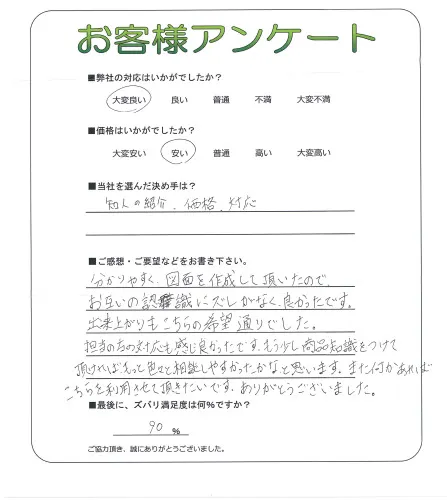 お客様アンケート
■弊社の対応はいかがでしたか？
大変良い 良い 普通 不満 大変不満
■価格はいかがでしたか？
大変安い 安い 普通 高い 大変高い
■当社を選んだ決め手は？
知人の紹介、価格、対応
■ご感想・ご要望などをお書き下さい。
分かりやすく、図面を作成して頂いたので、
お互いの認識にズレがなく、良かったです。
出来上がりもこちらの希望通りでした。
担当の方の対応も感じ良かったです。もう少し商品知識をつけて
頂ければもっと色々と相談しやすかったかなと思います。また何かあれば
こちらを利用させて頂きたいです。ありがとうございました。
■最後に、ズバリ満足度は何%ですか？
90 %
ご協力頂き、誠にありがとうございました。